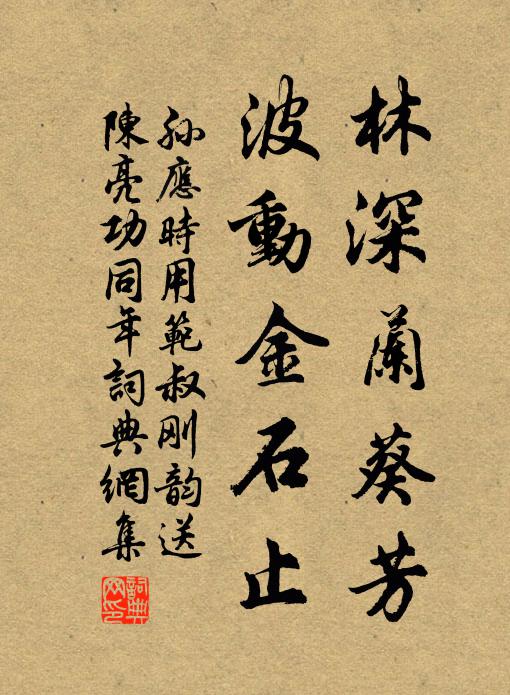 林深蘭葵芳
波動金石止
孫應時用範叔剛韵送
陳亮功同年詞典網集
詞典
网印